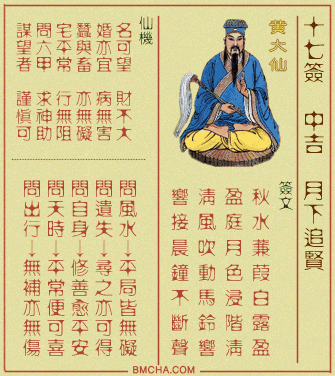 十七簽 中吉 月下追賢
黄大仙
簽文
秋水蒹葭白露盈
盈庭月色浸階清
清風吹動馬鈴響
響接晨鐘不斷聲
仙機
名可望 財不大
婚亦宜 病無害
蠶與畜 亦無礙
宅平常 行無阻
問六甲 求神助
謀望者 謹慎可
問風水→平局皆無礙
問遺失→尋之亦可得
問自身→修善愈平安
問天時→平常便可喜
問出行→無補亦無傷
BMCHA.COM